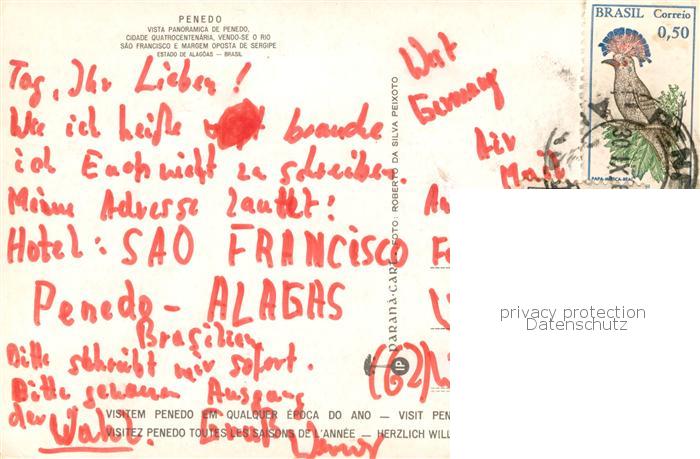 PENEDO
VISTA PANORAMICA DE PENEDO,
CIDADE QUATROCENTENÁRIA, VENDO-SE O RIO
SÃO FRANCISCO E MARGEM OPOSTA DE SERGIPE
ESTADO DE ALAGÔAS — BRASIL
Tag, Ihr Lieben!
Wie ich heiße brauche
ich Euch nicht zu schreiben.
Meine Adresse lautet:
Hotel: SAO FRANCISCO
Penedo - ALAGAS
Brasilien
Bitte schreibt mir sofort.
Bitte genauen Ausgang
der Wahl. Gruß
VISITEM PENEDO EM QUALQUER ÉPOCA DO ANO — VISIT PEN
VISITEZ PENEDO TOUTES LES SAISONS DE L'ANNÉE — HERZLICH WILL
PARANÁ-CART. FOTO: ROBERTO DA SILVA PEIXOTO
West
Germany
Air
Mail
BRASIL Correio
0,50
PAPA-MOSCA-REAL
(62)
privacy protection
Datenschutz